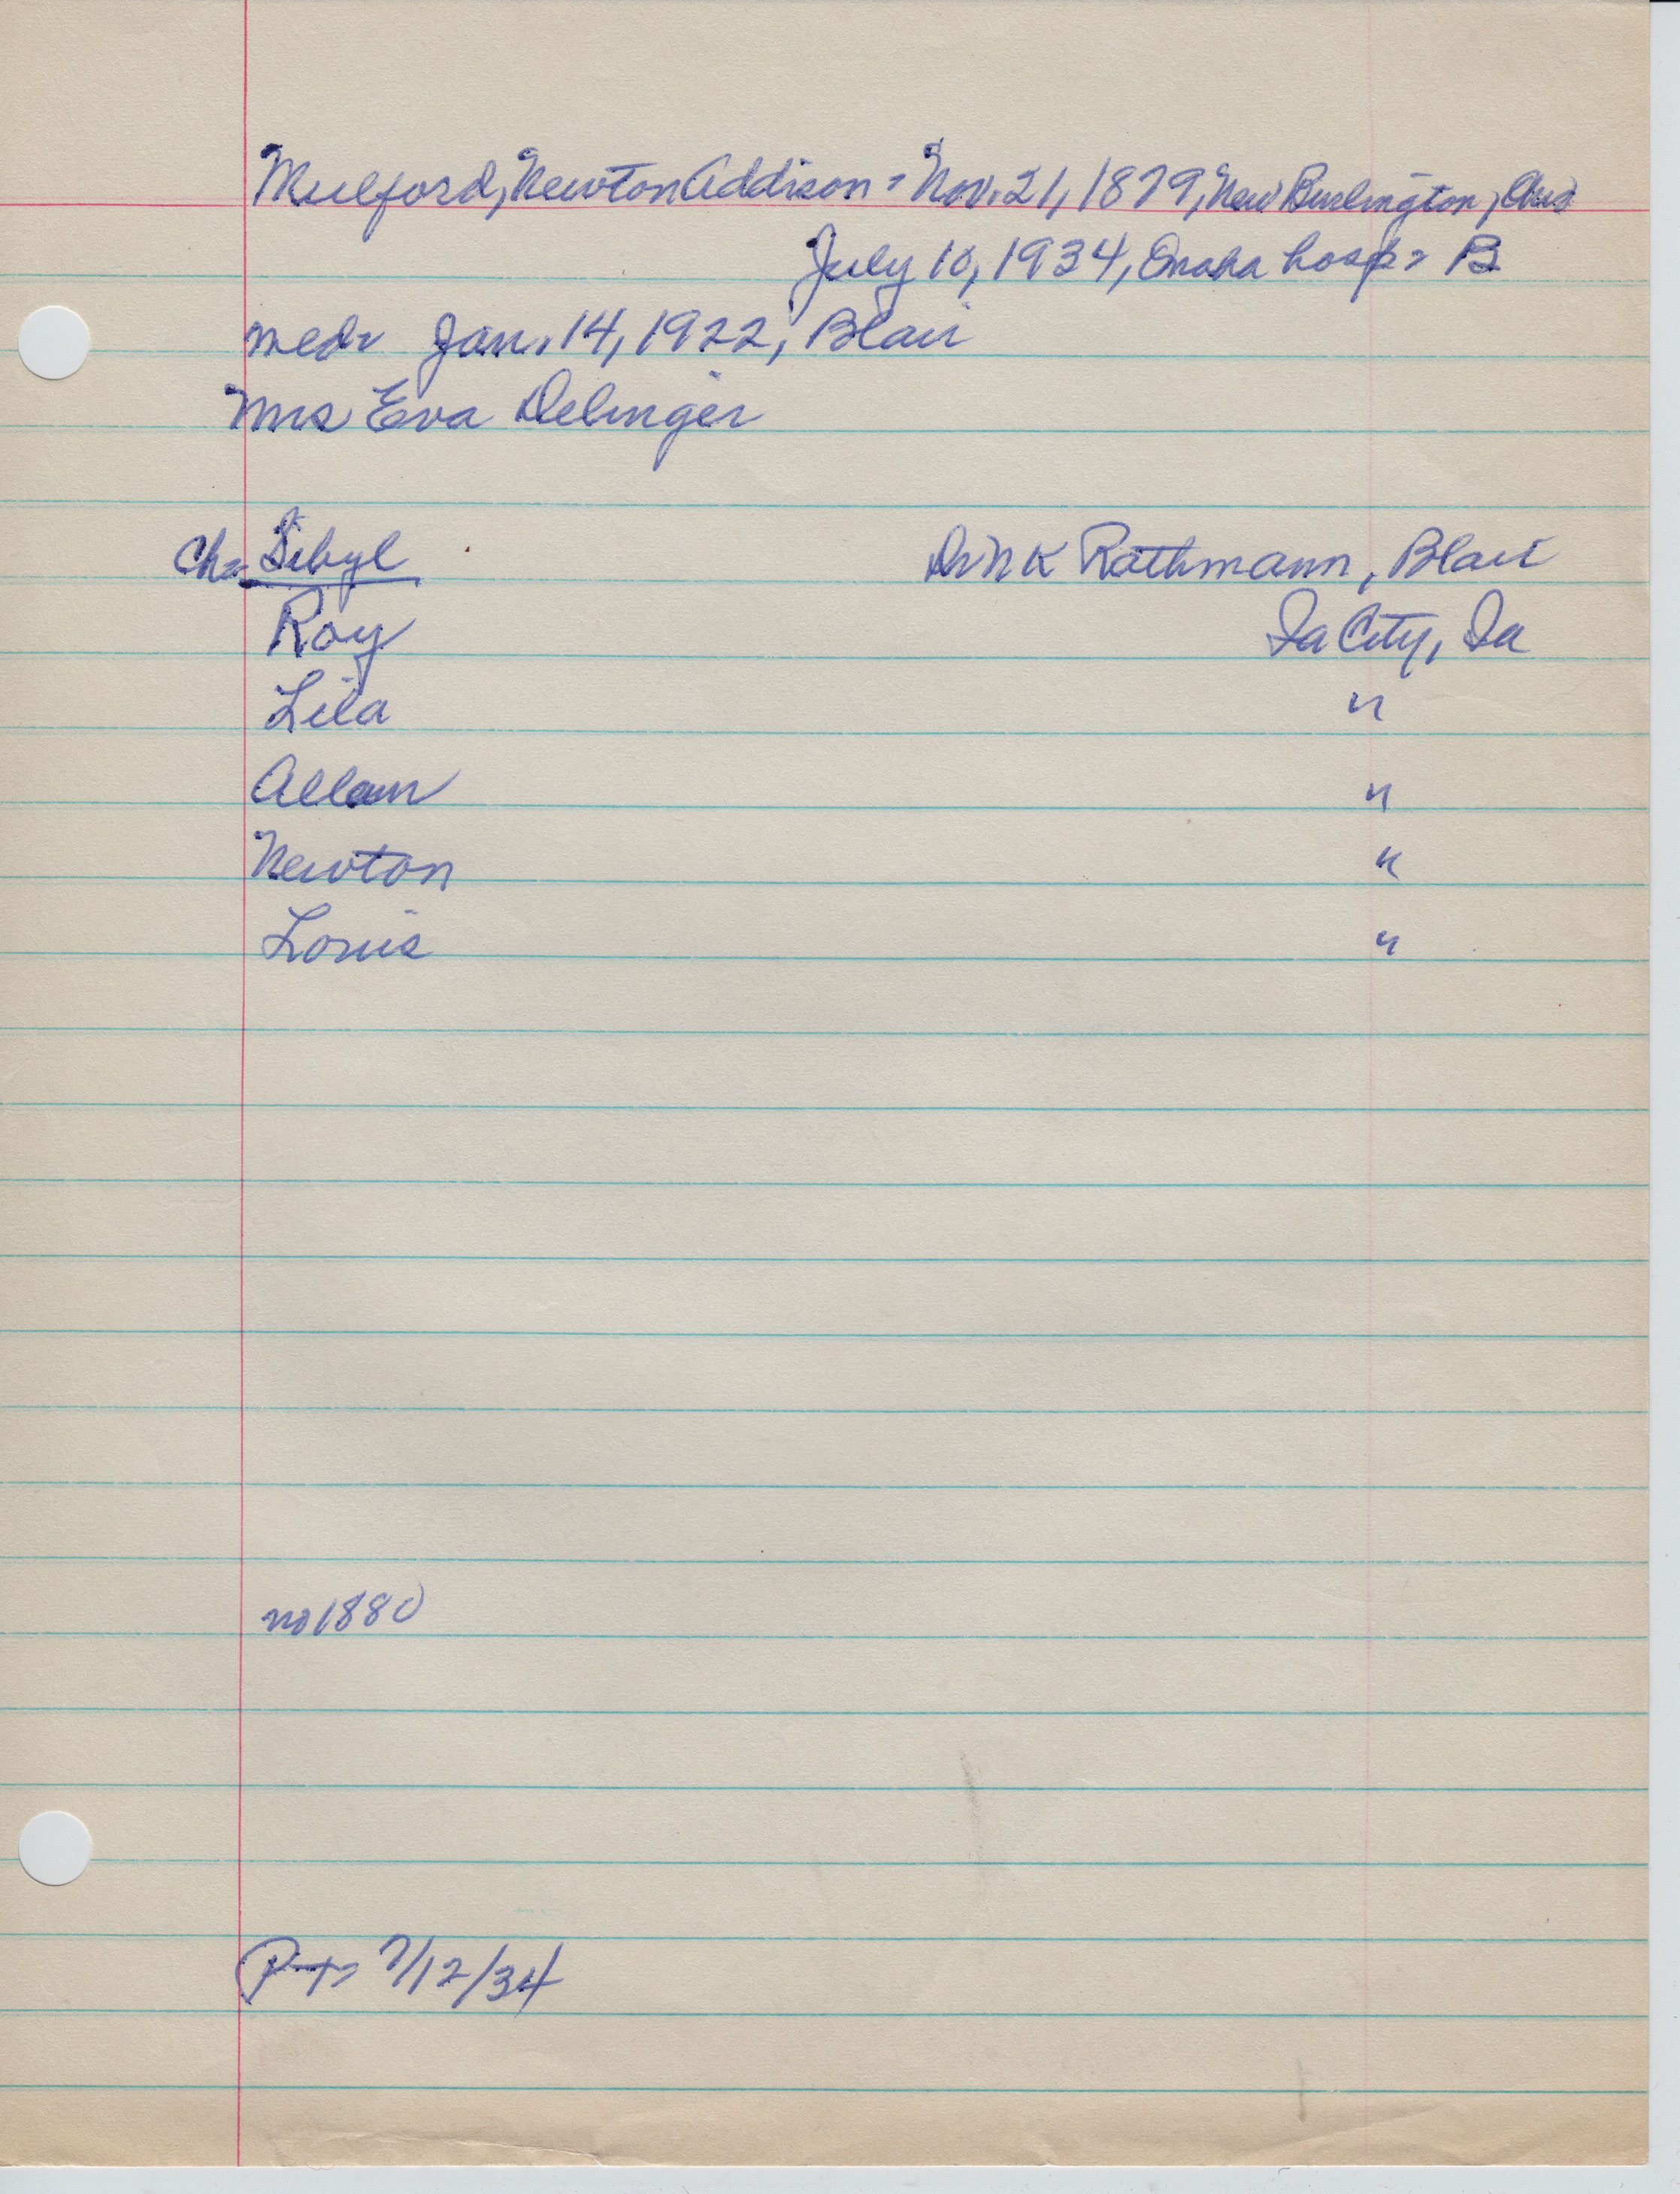 Mulford, Newton Addison = Nov. 21, 1879, New Burlington, Ohio
July 10, 1934, Omaha hosp = B
med= Jan. 14, 1922, Blair
Mrs Eva Delinger
Ch= Sibyl Dr N K Rathmann, Blair
Roy Ia City, Ia
Lila "
Allan "
Newton "
Louis "
no 1880
P-T= 7/12/34